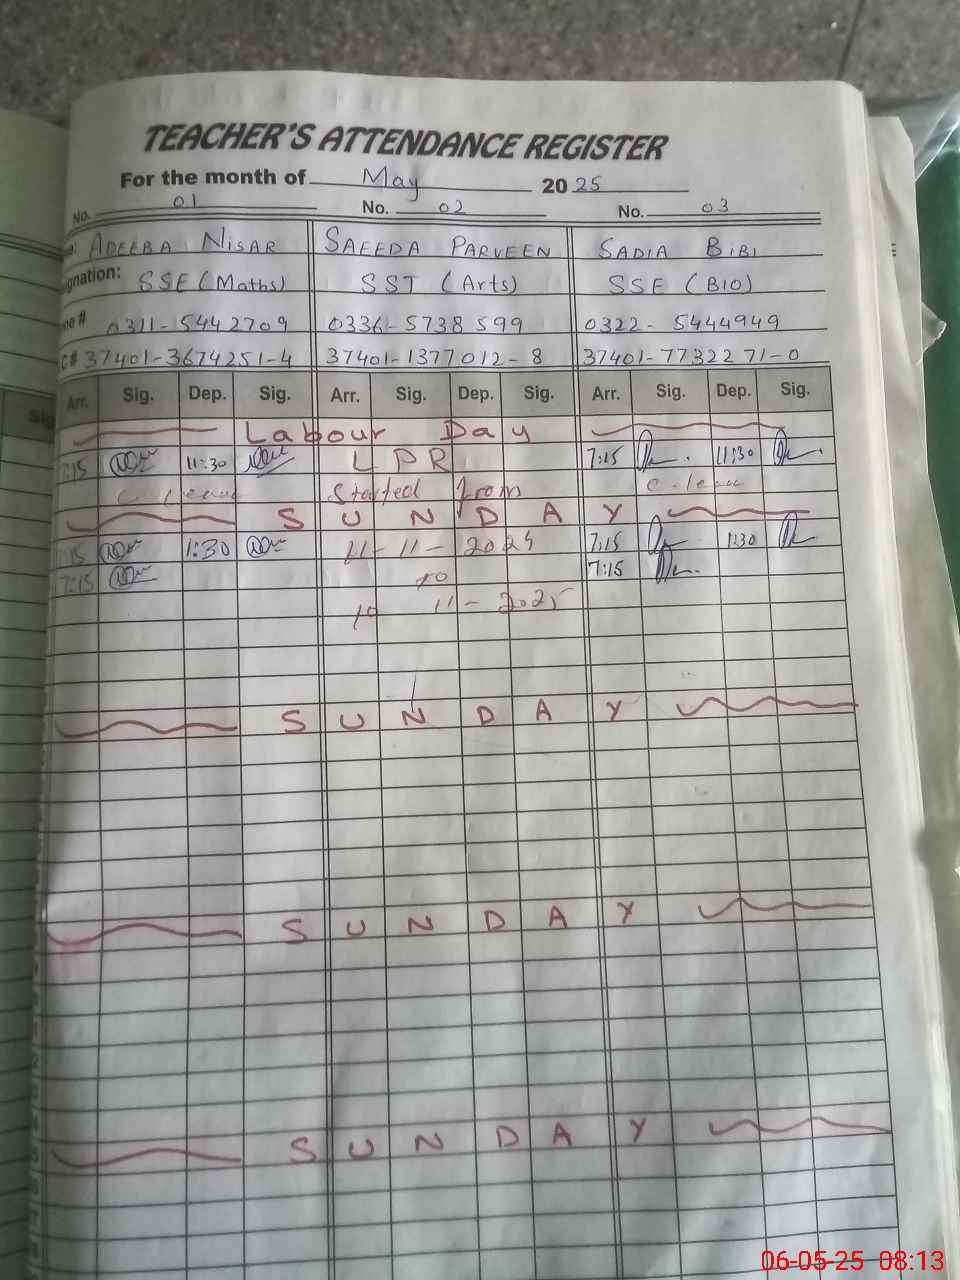 TEACHER'S ATTENDANCE REGISTER
For the month of May 2025
No. 01 No. 02 No. 03
ADEEBA NISAR SAEEDA PARVEEN SADIA BIBI
gnation: SSE (Maths) SST (Arts) SSE (BIO)
# 0311-5442709 0336-5738599 0322-5444949
C# 37401-3674251-4 37401-1377012-8 37401-7732271-0
Arr. Sig. Dep. Sig. Arr. Sig. Dep. Sig. Arr. Sig. Dep. Sig.
Labour Day
7:15 11:30 LPR 7:15 11:30
C. leave Started from C. leave
SUNDAY
7:15 1:30 11-11-2024 7:15 1:30
7:15 to 7:15
10 11-2025
SUNDAY
SUNDAY
SUNDAY
06-05-25 08:13